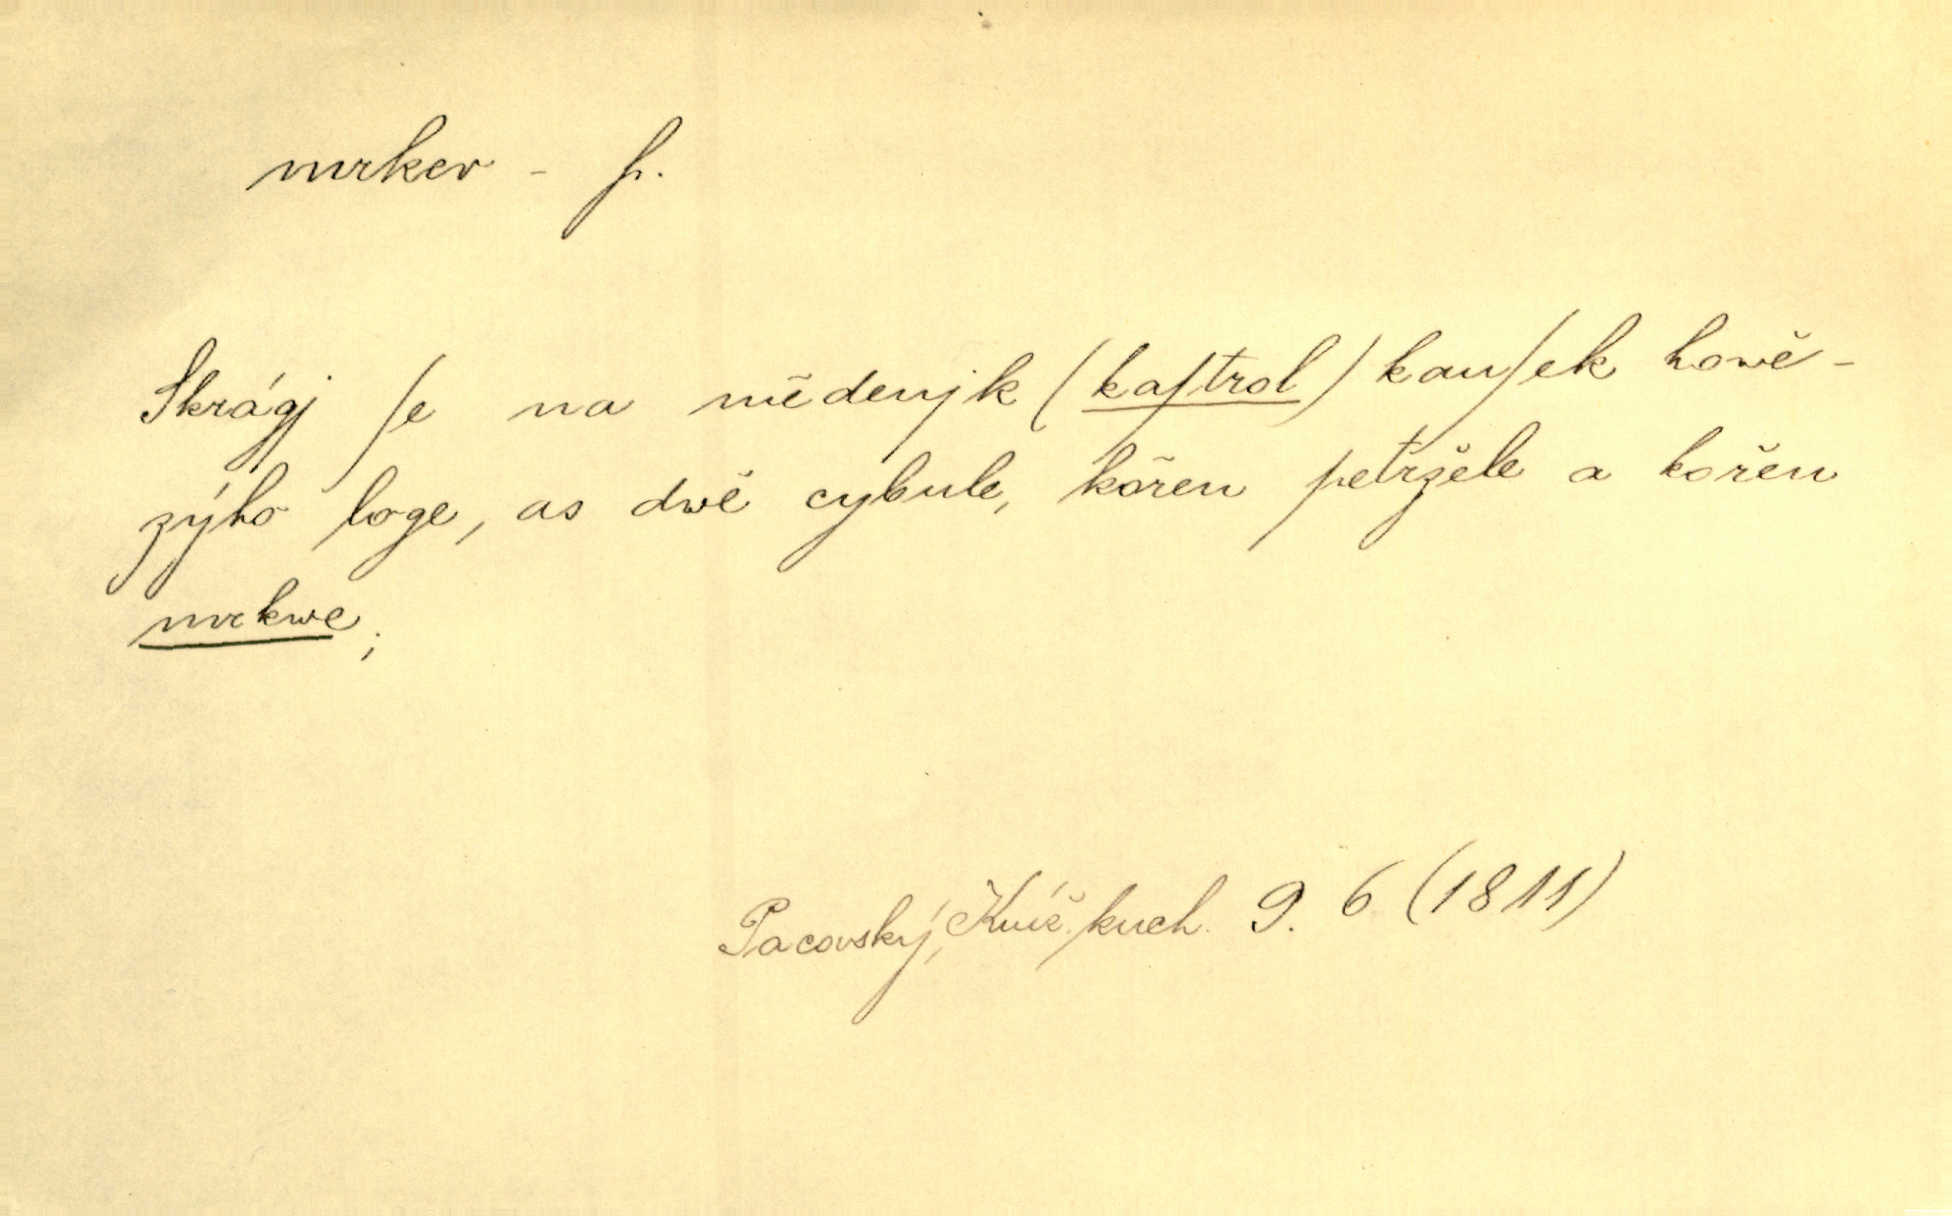 mrkev – f.
Skrágj ſe na mědenjk (kaſtrol) kauſek howě-
zýho loge, as dwě cybule, kořen petržele a kořen
mrkwe;
Pacovský, Kniž. kuch. 9. 6 (1811)